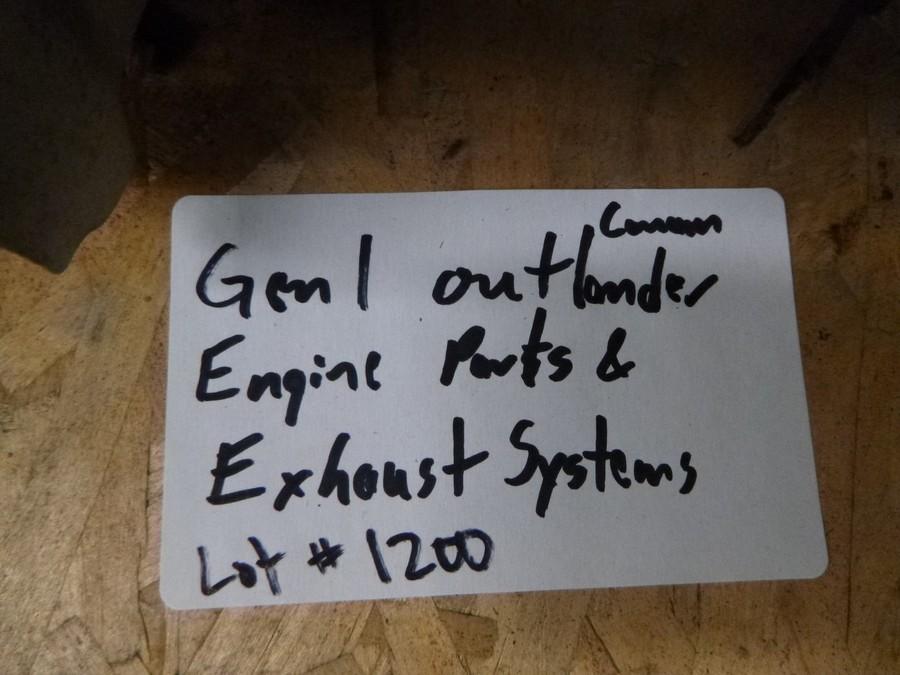 Gen 1 outlander
Engine Parts &
Exhaust Systems
Lot # 1200